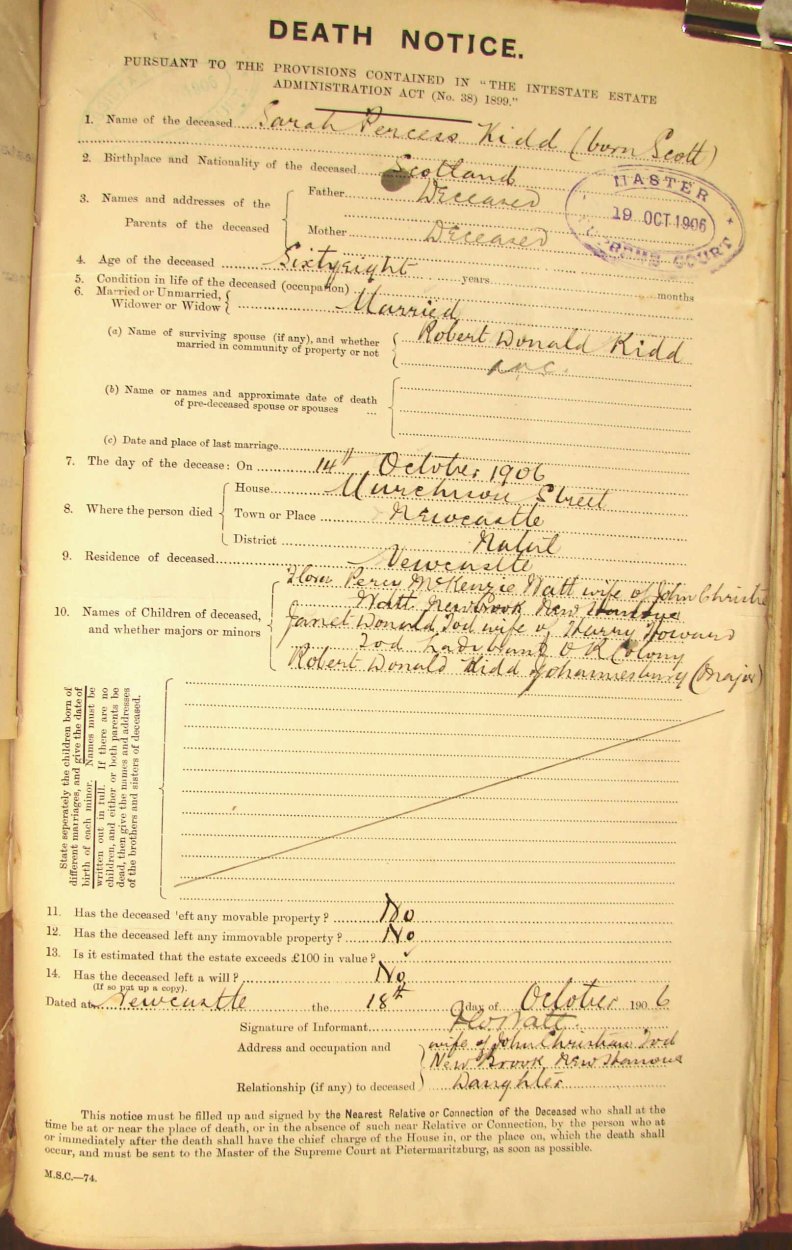 DEATH NOTICE.
PURSUANT TO THE PROVISIONS CONTAINED IN "THE INTESTATE ESTATE
ADMINISTRATION ACT (No. 38) 1899."
1. Name of the deceased Sarah Percess Kidd (born Scott)
2. Birthplace and Nationality of the deceased Scotland
3. Names and addresses of the Parents of the deceased
Father Deceased
Mother Deceased
MASTER
19 OCT 1906
SUPREME COURT
4. Age of the deceased Sixtyeight years months
5. Condition in life of the deceased (occupation)
6. Married or Unmarried, Widower or Widow Married
(a) Name of surviving spouse (if any), and whether
married in community of property or not
Robert Donald Kidd
(b) Name or names and approximate date of death
of pre-deceased spouse or spouses ...
(c) Date and place of last marriage
7. The day of the decease: On 14th October 1906
8. Where the person died
House Murchison Street
Town or Place Newcastle
District Natal
9. Residence of deceased Newcastle
10. Names of Children of deceased,
and whether majors or minors
Flora Percy McKenzie Watt wife of John Christie
Watt New Brook New Hanover
Janet Donald Tod wife of Harry Howard
Tod Ladybrand O R Colony
Robert Donald Kidd Johannesburg (Major)
State seperately the children born of
different marriages, and give the date of
birth of each minor. Names must be
written out in full. If there are no
children, and either or both parents be
dead, then give the names and addresses
of the brothers and sisters of deceased.
11. Has the deceased left any movable property? No
12. Has the deceased left any immovable property? No
13. Is it estimated that the estate exceeds £100 in value?
14. Has the deceased left a will? No
(If so put up a copy).
Dated at Newcastle the 18th day of October 1906
Signature of Informant Flo Watt
Address and occupation and
wife of John Christian Tod
New Brook New Hanover
Relationship (if any) to deceased Daughter
This notice must be filled up and signed by the Nearest Relative or Connection of the Deceased who shall at the
time be at or near the place of death, or in the absence of such near Relative or Connection, by the person who at
or immediately after the death shall have the chief charge of the House in, or the place on, which the death shall
occur, and must be sent to the Master of the Supreme Court at Pietermaritzburg, as soon as possible.
M.S.C.—74.